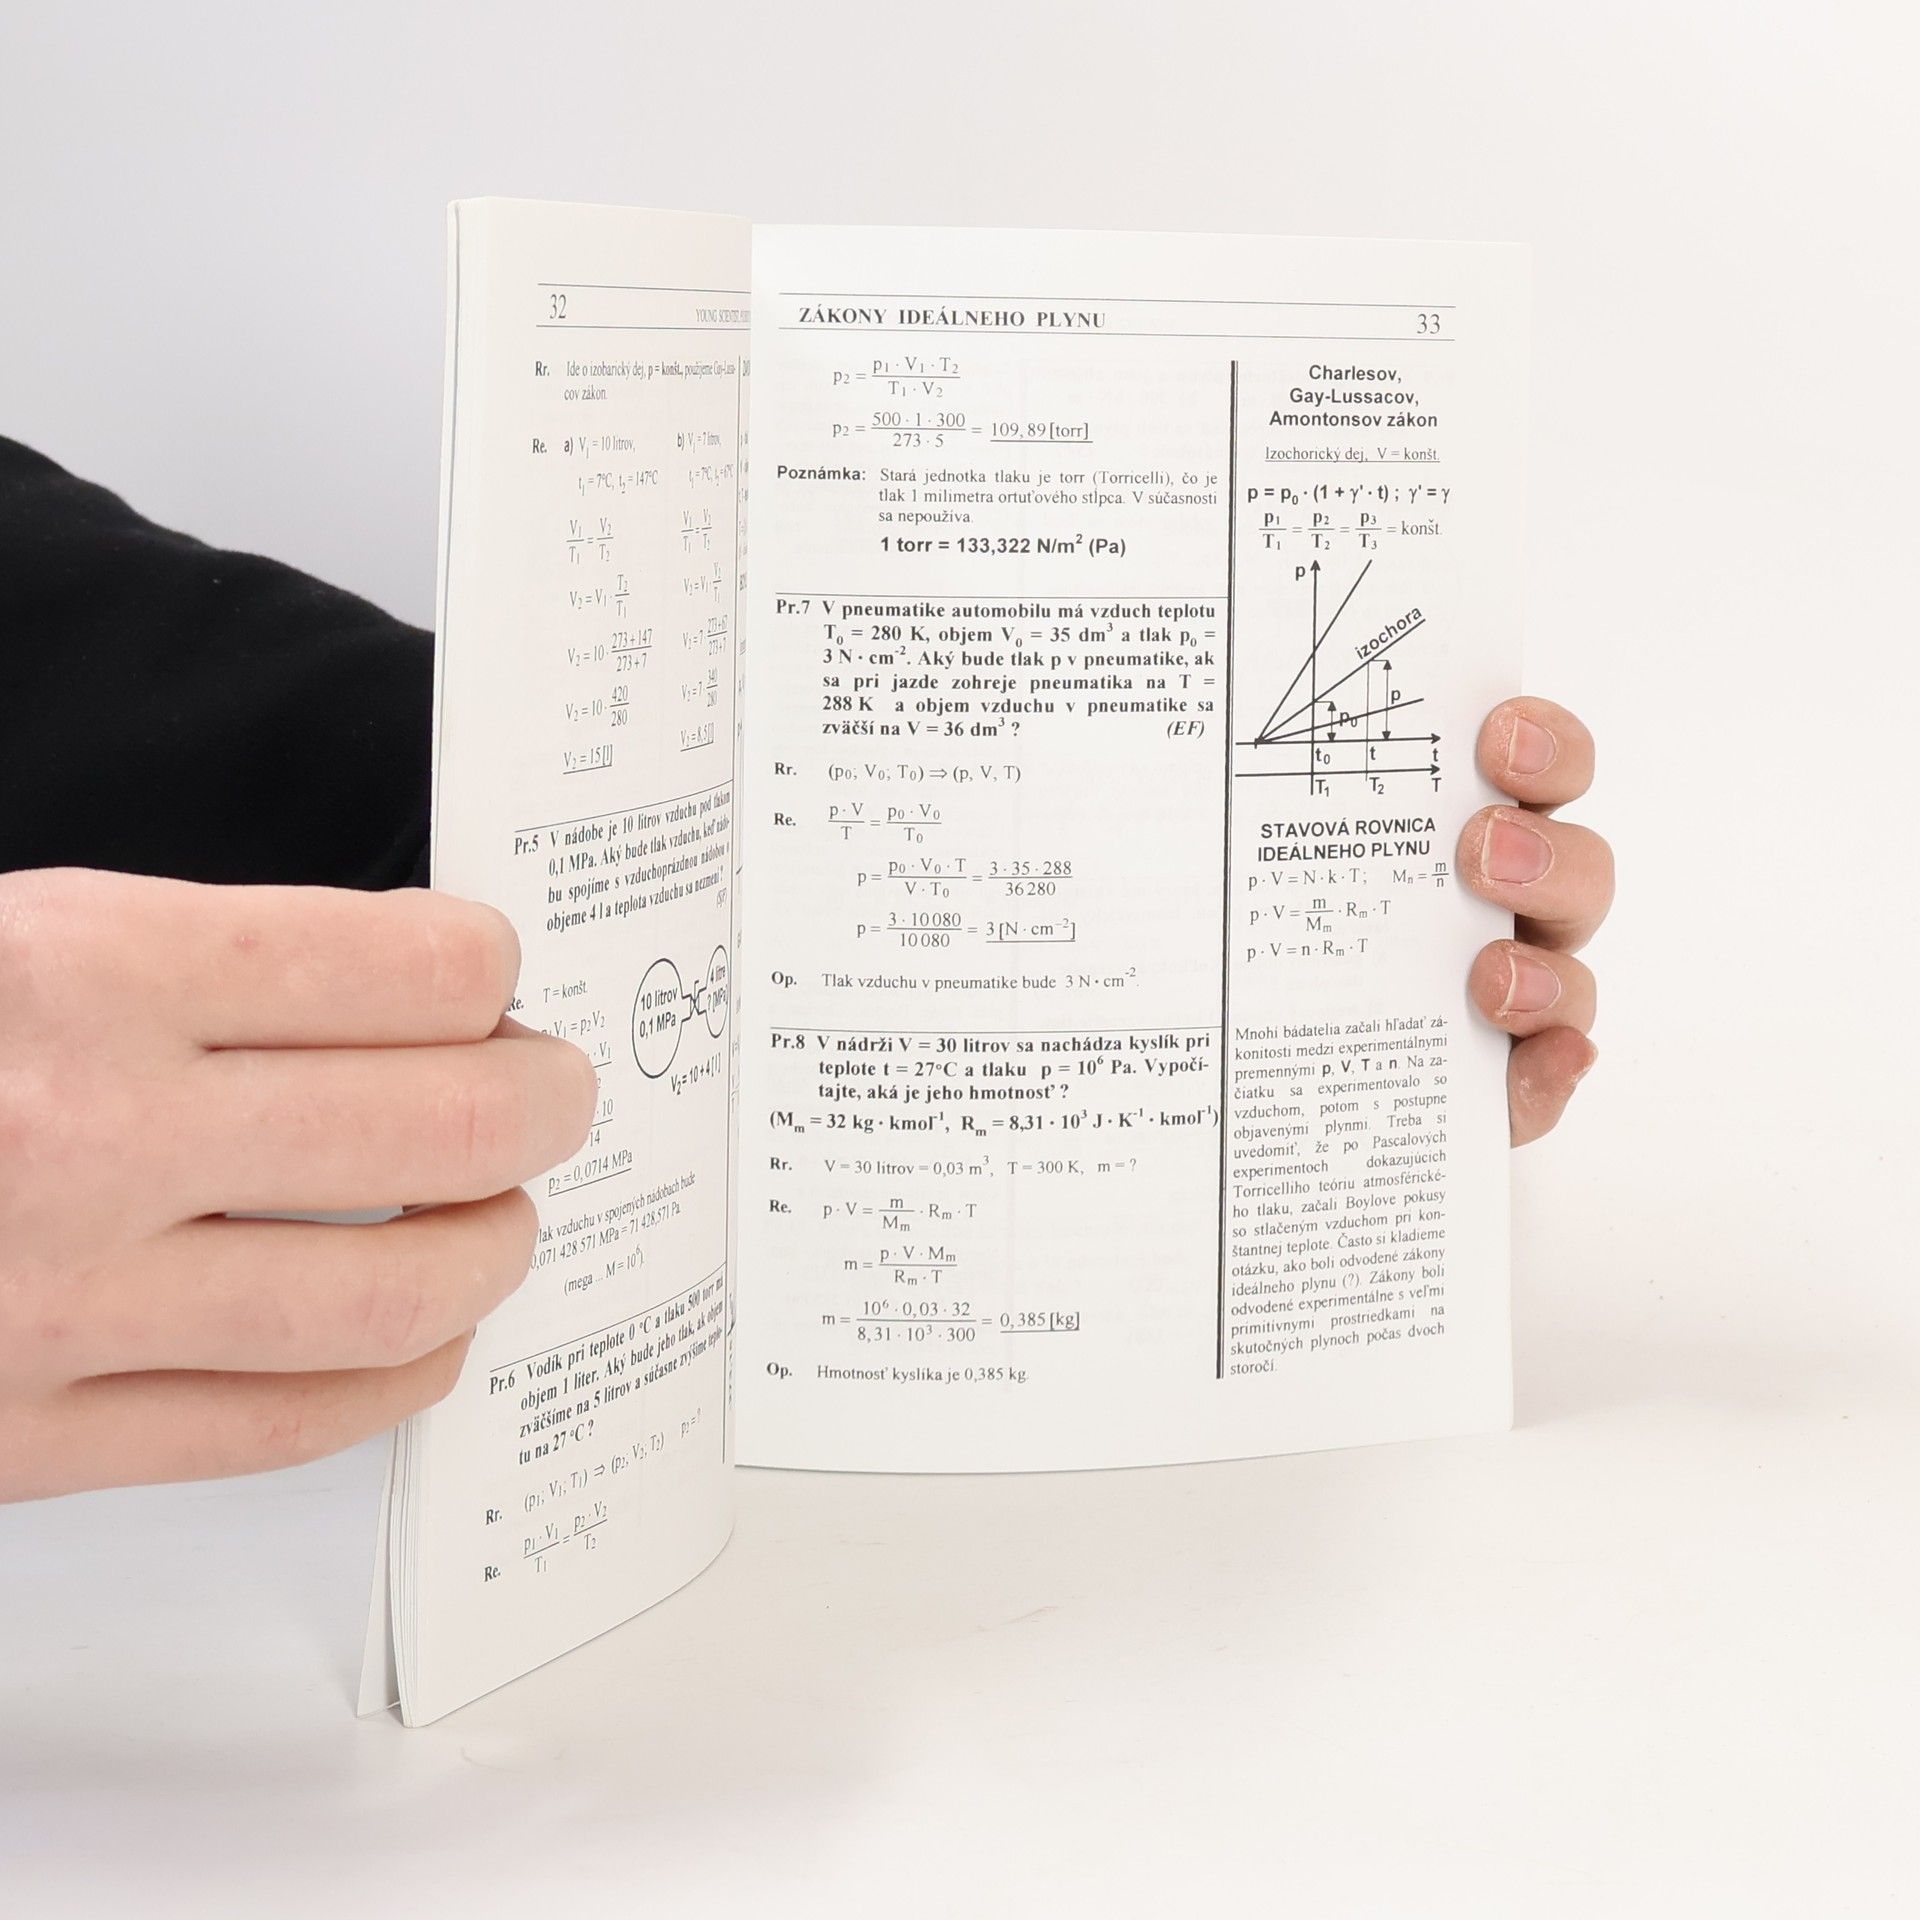 32
Rr. Ide o izobarický dej, p = konšt., použijeme Gay-Lussa-
cov zákon.
Re. a) V₁ = 10 litrov,
t₁ = 7°C, t₂ = 147°C
V₁/T₁ = V₂/T₂
V₂ = V₁ · T₂/T₁
V₂ = 10 · 273+147/273+7
V₂ = 10 · 420/280
V₂ = 15 [l]
b) V₁ = 7 litrov,
t₁ = 7°C, t₂ = 67°C
V₁/T₁ = V₂/T₂
V₂ = 7 · 273+67/273+7
V₂ = 7 · 340/280
V₂ = 8,5 [l]
Pr.5 V nádobe je 10 litrov vzduchu pod tlakom
0,1 MPa. Aký bude tlak vzduchu, keď nádo-
bu spojíme s vzduchoprázdnou nádobou o
objeme 4 l a teplota vzduchu sa nezmení?
Re. T = konšt.
V₁ = p₂V₂
10 litrov
0,1 MPa
4 litre
? [MPa]
V₂ = 10 + 4 [l]
· V₁
· 10
14
p₂ = 0,0714 MPa
lak vzduchu v spojených nádobach bude
0,071 428 571 MPa = 71 428,571 Pa
(mega ... M = 10⁶).
Pr.6 Vodík pri teplote 0 °C a tlaku 500 torr má
objem 1 liter. Aký bude jeho tlak, ak objem
zväčšíme na 5 litrov a súčasne zvýšime teplo-
tu na 27 °C ?
Rr. (p₁; V₁; T₁) ⇒ (p₂; V₂; T₂) p₂ = ?
Re. p₁ · V₁/T₁ = p₂ · V₂/T₂
ZÁKONY IDEÁLNEHO PLYNU 33
p₂ = p₁ · V₁ · T₂/T₁ · V₂
p₂ = 500 · 1 · 300/273 · 5 = 109,89 [torr]
Poznámka: Stará jednotka tlaku je torr (Torricelli), čo je
tlak 1 milimetra ortuťového stĺpca. V súčasnosti
sa nepoužíva.
1 torr = 133,322 N/m² (Pa)
Pr.7 V pneumatike automobilu má vzduch teplotu
T₀ = 280 K, objem V₀ = 35 dm³ a tlak p₀ =
3 N · cm⁻². Aký bude tlak p v pneumatike, ak
sa pri jazde zohreje pneumatika na T =
288 K a objem vzduchu v pneumatike sa
zväčší na V = 36 dm³ ? (EF)
Rr. (p₀; V₀; T₀) ⇒ (p, V, T)
Re. p · V/T = p₀ · V₀/T₀
p = p₀ · V₀ · T/V · T₀ = 3 · 35 · 288/36 280
p = 3 · 10 080/10 080 = 3 [N · cm⁻²]
Op. Tlak vzduchu v pneumatike bude 3 N · cm⁻².
Pr.8 V nádrži V = 30 litrov sa nachádza kyslík pri
teplote t = 27°C a tlaku p = 10⁶ Pa. Vypočí-
tajte, aká je jeho hmotnosť ?
(Mₘ = 32 kg · kmol⁻¹, Rₘ = 8,31 · 10³ J · K⁻¹ · kmol⁻¹)
Rr. V = 30 litrov = 0,03 m³, T = 300 K, m = ?
Re. p · V = m/Mₘ · Rₘ · T
m = p · V · Mₘ/Rₘ · T
m = 10⁶ · 0,03 · 32/8,31 · 10³ · 300 = 0,385 [kg]
Op. Hmotnosť kyslíka je 0,385 kg.
Charlesov,
Gay-Lussacov,
Amontonsov zákon
Izochorický dej, V = konšt.
p = p₀ · (1 + γ' · t) ; γ' = γ
p₁/T₁ = p₂/T₂ = p₃/T₃ = konšt.
p
izochora
p
p₀
t₀ t t
T₁ T₂ T
STAVOVÁ ROVNICA
IDEÁLNEHO PLYNU
p · V = N · k · T; Mₙ = m/n
p · V = m/Mₘ · Rₘ · T
p · V = n · Rₘ · T
Mnohí bádatelia začali hľadať zá-
konitosti medzi experimentálnymi
premennými p, V, T a n. Na za-
čiatku sa experimentovalo so
vzduchom, potom s postupne
objavenými plynmi. Treba si
uvedomiť, že po Pascalových
experimentoch dokazujúcich
Torricelliho teóriu atmosférické-
ho tlaku, začali Boylove pokusy
so stlačeným vzduchom pri kon-
štantnej teplote. Často si kladieme
otázku, ako boli odvodené zákony
ideálneho plynu (?). Zákony boli
odvodené experimentálne s veľmi
primitívnymi prostriedkami na
skutočných plynoch počas dvoch
storočí.